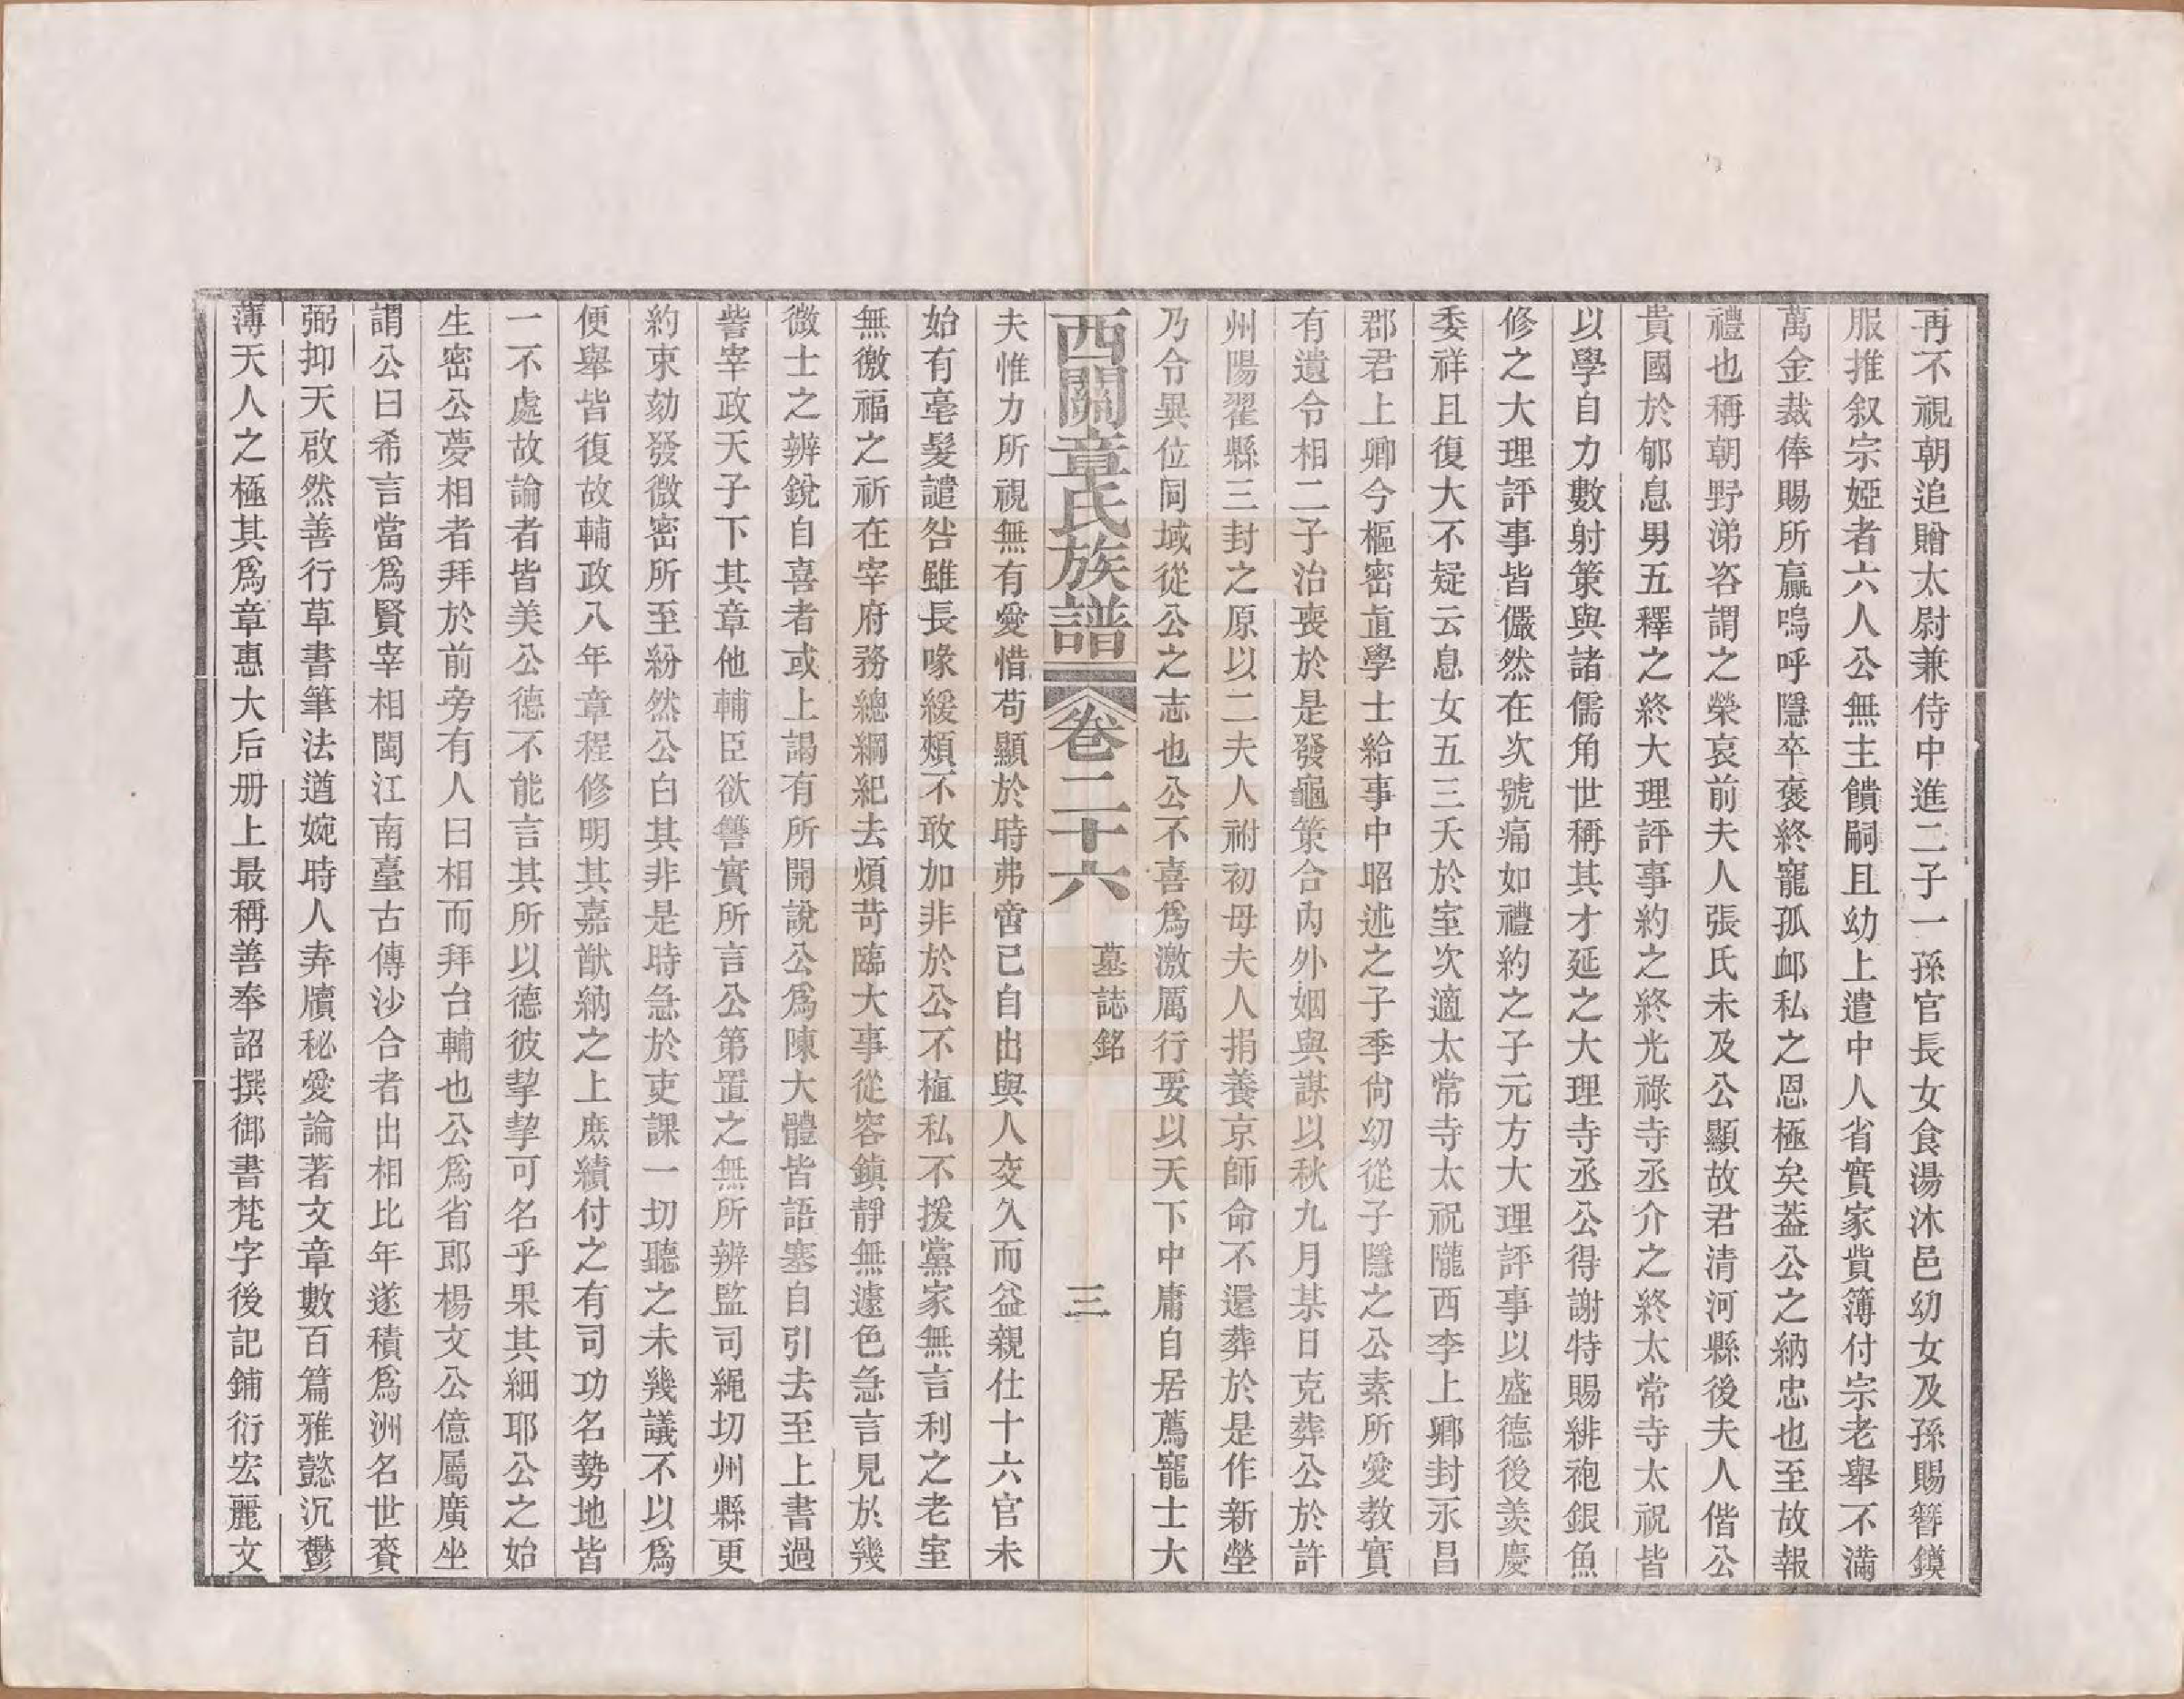 再不視朝追贈太尉兼侍中進二子一孫官長女食湯沐邑幼女及孫賜簪鏌
服推叙宗婭者六人公無主饋嗣且幼上遣中人省實家貲簿付宗老舉不滿
萬金裁俸賜所贏嗚呼隱卒褒終寵孤卹私之恩極矣葢公之納忠也至故報
禮也稱朝野涕咨謂之榮哀前夫人張氏未及公顯故君清河縣後夫人偕公
貴國於郇息男五釋之終大理評事約之終光祿寺丞介之終太常寺太祝皆
以學自力數射策與諸儒角世稱其才延之大理寺丞公得謝特賜緋袍銀魚
修之大理評事皆儼然在次號痛如禮約之子元方大理評事以盛德後羡慶
委祥且復大不疑云息女五三夭於室次適太常寺太祝隴西李上卿封永昌
郡君上卿今樞密直學士給事中昭述之子季尙幼從子隱之公素所愛教實
有遺令相二子治喪於是發龜策合內外姻與謀以秋九月某日克葬公於許
州陽翟縣三封之原以二夫人祔初母夫人捐養京師命不還葬於是作新塋
乃令異位同域從公之志也公不喜爲激厲行要以天下中庸自居薦寵士大
西關章氏族譜 卷二十六 墓誌銘 三
夫惟力所視無有愛惜苟顯於時弗啻已自出與人交久而益親仕十六官未
始有毫髮譴咎雖長喙緩頰不敢加非於公不植私不援黨家無言利之老室
無徼福之祈在宰府務總綱紀去煩苛臨大事從容鎮靜無遽色急言見於幾
微士之辨銳自喜者或上謁有所開說公爲陳大體皆語塞自引去至上書過
訾宰政天子下其章他輔臣欲讐實所言公第置之無所辨監司繩切州縣更
約束劾發微密所至紛然公白其非是時急於吏課一切聽之未幾議不以爲
便舉皆復故輔政八年章程修明其嘉猷納之上庶績付之有司功名勢地皆
一不處故論者皆美公德不能言其所以德彼挈挈可名乎果其細耶公之始
生密公夢相者拜於前旁有人曰相而拜台輔也公爲省郎楊文公億屬廣坐
謂公曰希言當爲賢宰相閩江南臺古傳沙合者出相比年遂積爲洲名世賚
弼抑天啟然善行草書筆法遒婉時人弆牘秘愛論著文章數百篇雅懿沉鬱
薄天人之極其爲章惠大后册上最稱善奉詔撰御書梵字後記鋪衍宏麗文